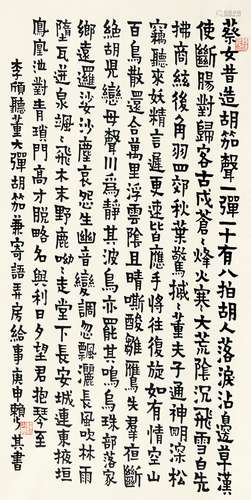 蔡女昔造胡笳聲一彈一十有八拍胡人落淚沾邊草漢
使斷腸對歸客古戍蒼々烽火寒大荒陰沉飛雪白先
拂商絃後角羽四郊秋葉驚摵々董夫子通神明深松
竊聽來妖精言遲更速皆應手將往復旋如有情空山
百鳥散還合萬里浮雲陰且晴嘶酸雛雁失群夜斷
絕胡兒戀母聲川為靜其波鳥亦罷其鳴烏珠部落家
鄉遠邏娑沙塵哀怨生幽音變調忽飄灑長風吹林雨
墮瓦迸泉颯々飛木末野鹿呦々走堂下長安城連東掖垣
鳳凰池對青瑣門高才脫略名與利日夕望君抱琴至
李頎聽董大彈胡笳兼寄語弄房給事庚申賴少其書